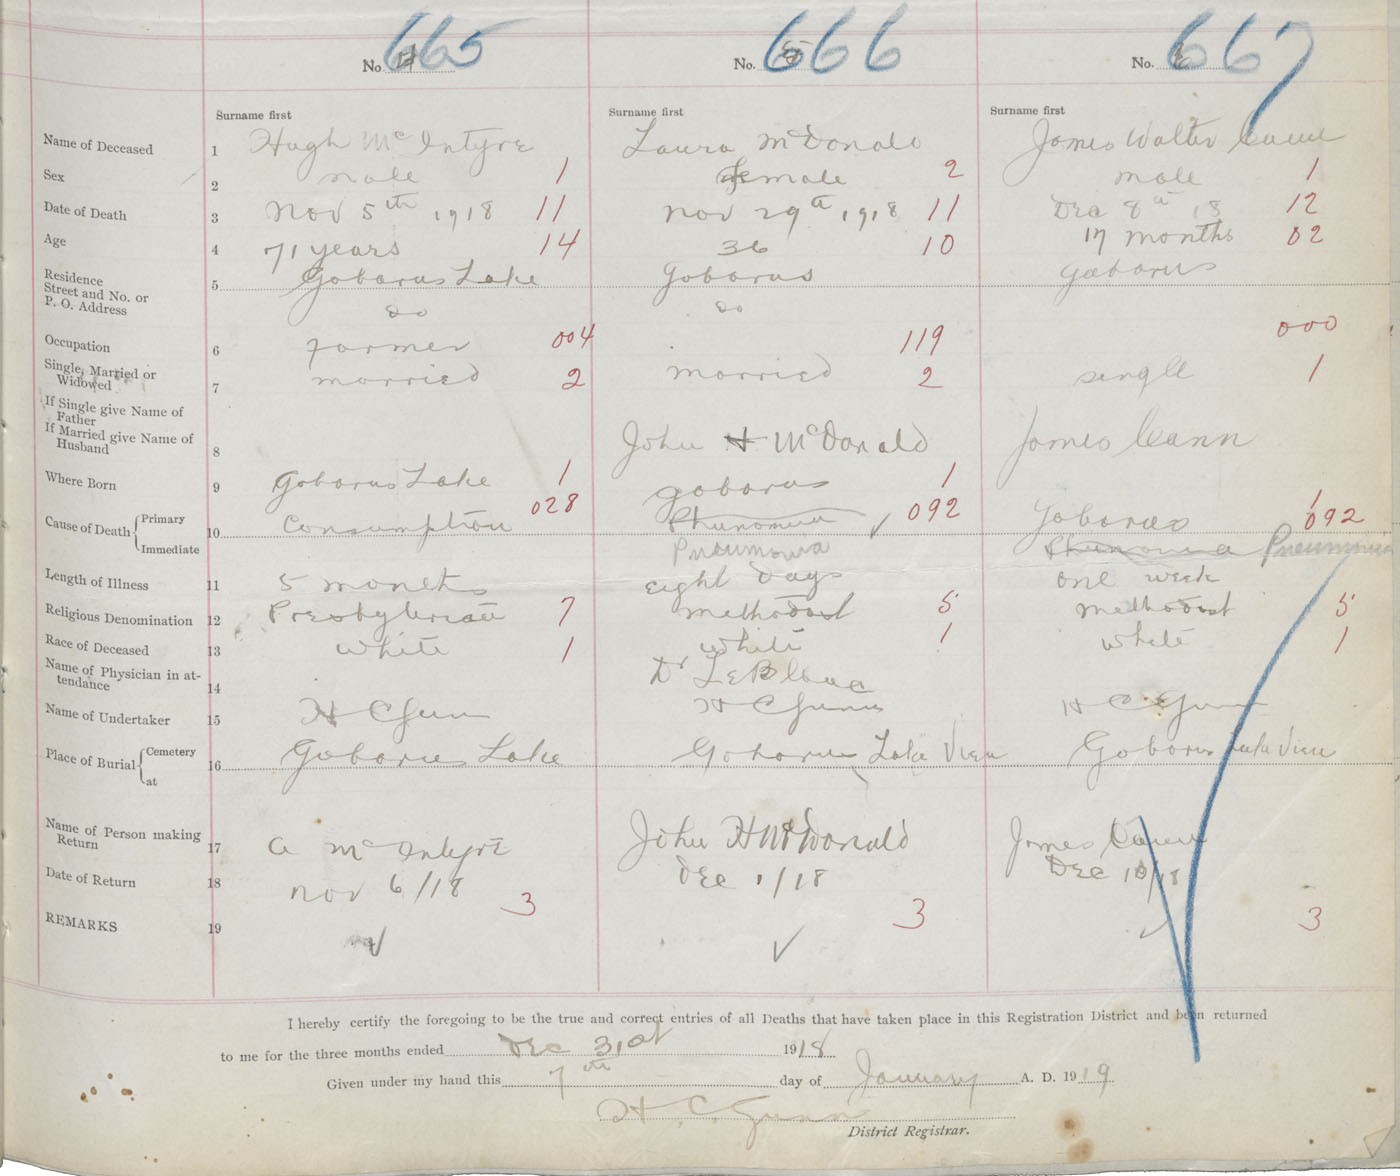 No. 665 No. 666 No. 667
Surname first Surname first Surname first
Name of Deceased 1 Hugh McIntyre Laura McDonald James Walter Cann
Sex 2 male 1 Female 2 male 1
Date of Death 3 Nov 5th 1918 11 Nov 29th 1918 11 Dec 8th 18 12
Age 4 71 years 14 36 10 17 months 02
Residence
Street and No. or
P. O. Address
5 Gobarus Lake Gobarus Gabarus
do do
Occupation 6 Farmer 004 119 000
Single, Married or
Widowed
7 married 2 married 2 single 1
If Single give Name of
Father
If Married give Name of
Husband
8 John H McDonald James Cann
Where Born 9 Gobarus Lake 1 gobarus 1 Gobarus 1
Cause of Death { Primary
Immediate
10 Consumption 028 Phunomia ✓ 092 092
Pneumonia Phunomia Pneumonia
Length of Illness 11 5 months eight days one week
Religious Denomination 12 Presbyterian 7 Methodist 5 Methodist 5
Race of Deceased 13 white 1 white 1 white 1
Name of Physician in at-
tendance
14 Dr LeBlanc
Name of Undertaker 15 H C Gunn H C Gunn H C Gunn
Place of Burial { Cemetery
at
16 Gobarus Lake Gobarus Lake View Gobarus Lake View
Name of Person making
Return
17 A McIntyre John H McDonald James Cann
Date of Return 18 Nov 6/18 Dec 1/18 Dec 10/18
3 3 3
REMARKS 19 ✓ ✓ ✓
I hereby certify the foregoing to be the true and correct entries of all Deaths that have taken place in this Registration District and been returned
to me for the three months ended Dec 31st 1918
Given under my hand this 7th day of January A. D. 1919
H. C. Gunn
District Registrar.